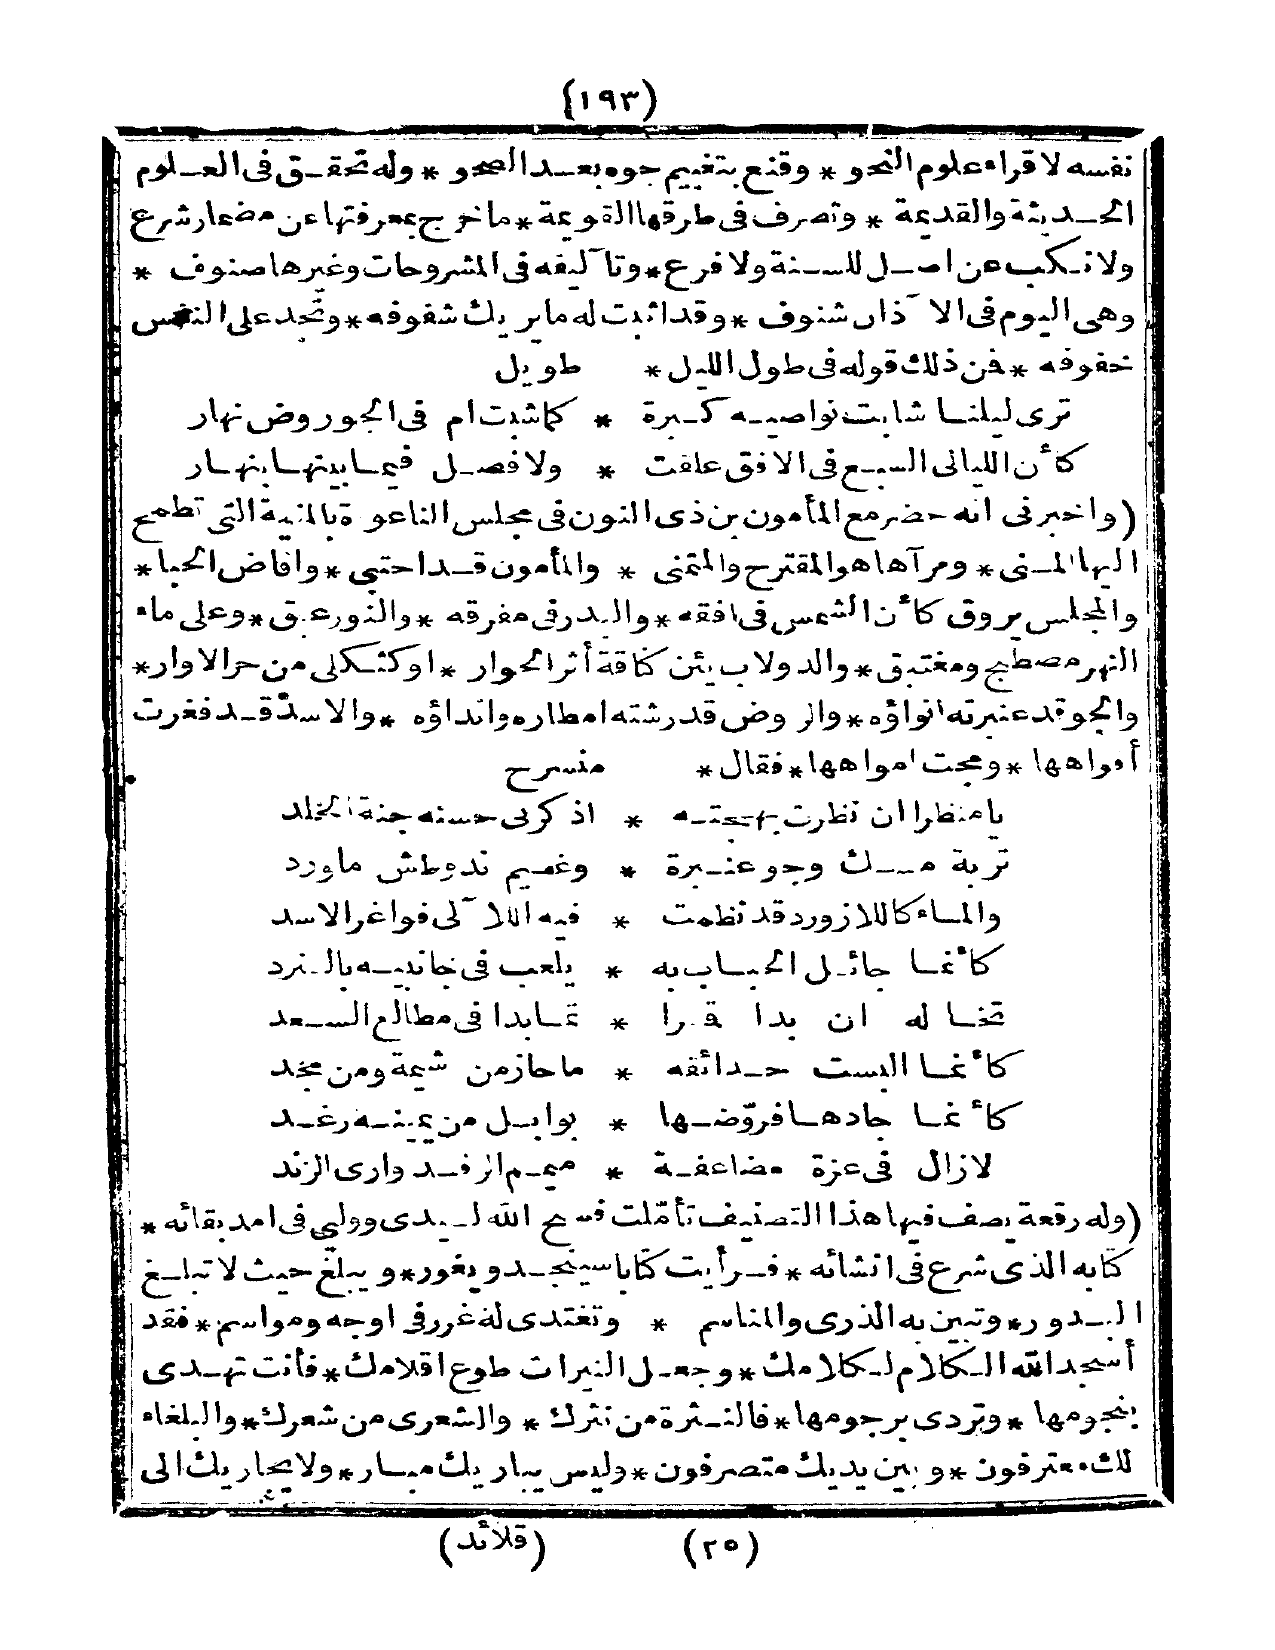 (١٩٣)
نفسه لا قراء علوم النحو * وقنع بتغييم جوه بعد الصحو * وله تحقق فى العلوم
الحديثة والقديمة * وتصرف فى طرقها القويمة * ما خرج بمعرفتها عن مضمار شرع
ولا نكب عن اصل للسنة ولا فرع * وتآليفه فى المشروحات وغيرها صنوف *
وهى اليوم فى الا ٓذان شنوف * وقد اثبت له ما يريك شفوفه * وتجد على النفس
خفوفه * فمن ذلك قوله فى طول الليل * طويل
ترى ليلنا شابت نواصيه كبرة * كما شبت ام فى الجو روض نهار
كأن الليالى السبع فى الافق علقت * ولا فصل فيما بينها بنهار
(واخبرنى انه حضر مع المأمون بن ذى النون فى مجلس الناعورة بالمنية التى تطمح
اليها المنى * ومرآها هو المقترح والمتمنى * والمأمون قد احتبى * وافاض الحبا *
والمجلس يروق كأن الشمس فى افقه * والبدر فى مفرقه * والنور عبق * وعلى ماء
النهر مصطبح ومغتبق * والدولاب يئن كناقة أثر الحوار * اوكثكلى من حر الاوار *
والجو قد عنبرته انواؤه * والروض قد رشته امطاره وانداؤه * والاسد قد فغرت
أفواهها * ومجت امواهها * فقال * منسرح
يا منظرا ان نظرت بهجته * اذكرنى حسنه جنة الخلد
تربة مسك وجو عنبرة * وغيم ند وطش ماورد
والماء كاللازورد قد نظمت * فيه اللا ٓلى فواغر الاسد
كأنما جائل الحباب به * يلعب فى جانبيه بالنرد
تخاله ان بدا قمرا * تما بدا فى مطالع السعد
كأنما البست حدائقه * ما حاز من شيمة ومن مجد
كأنما جادها فروّضها * بوابل من يمينه رغد
لازال فى عزة مضاعفة * ميمم الرفد وارى الزند
(وله رقعة يصف فيها هذا التصنيف تأمّلت فسح الله لسيدى ووليى فى امد بقائه *
كتابه الذى شرع فى انشائه * فرأيت كتابا سينجد ويغور * ويبلغ حيث لا تبلغ
البدور * وتبين به الذرى والمناسم * وتغتدى له غرر فى اوجه ومواسم * فقد
أسجد الله الكلام لكلامك * وجعل النيرات طوع اقلامك * فأنت تهدى
بنجومها * وتردى برجومها * فالنثرة من نثرك * والشعرى من شعرك * والبلغاء
لك معترفون * وبين يديك متصرفون * وليس يباريك مبار * ولا يجاريك الى
(٢٥) (قلائد)